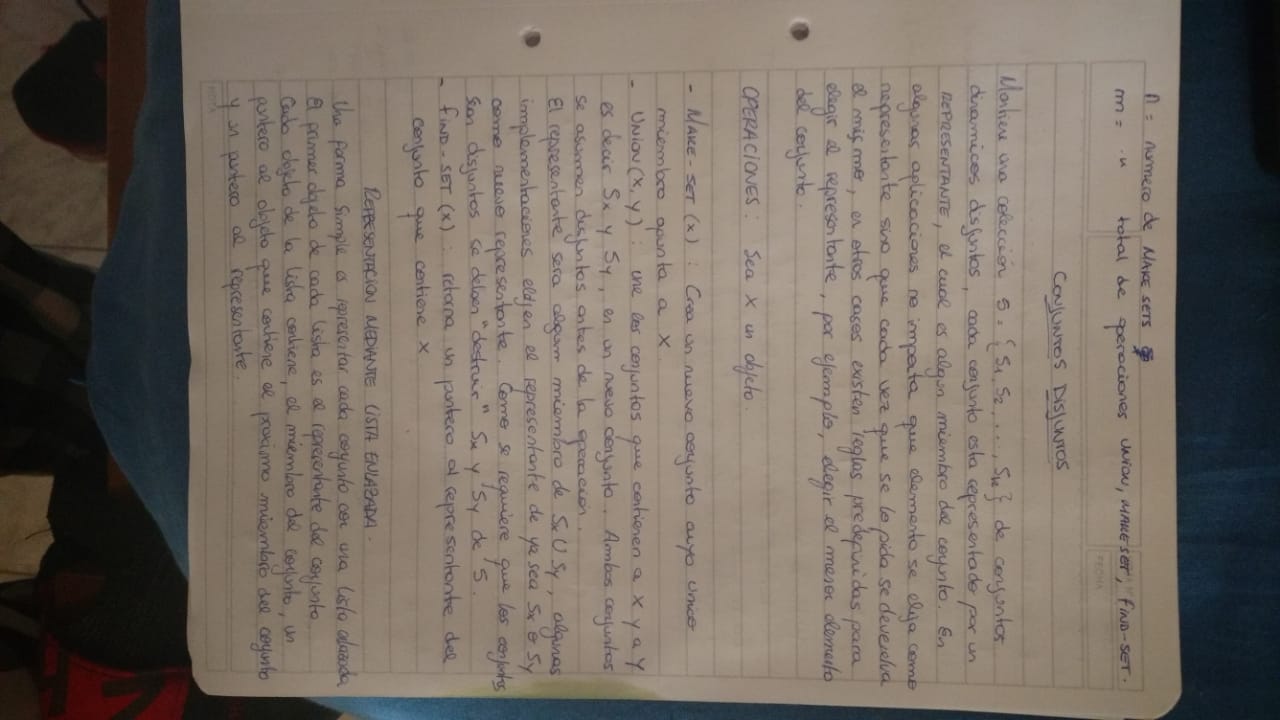 n = numero de MAKE SETS
m = " total de operaciones UNION, MAKE SET, FIND-SET.
FECHA
CONJUNTOS DISJUNTOS
Mantiene una colección S = {S1, S2, ..., Sk} de conjuntos
dinamicos disjuntos, cada conjunto esta representado por un
REPRESENTANTE, el cual es algun miembro del conjunto. En
algunas aplicaciones no importa que elemento se elija como
representante sino que cada vez que se lo pida se devuelva
el mismo, en otros casos existen reglas predefinidas para
elegir el representante, por ejemplo, elegir el menor elemento
del conjunto.
OPERACIONES: Sea X un objeto.
- MAKE-SET (x): Crea un nuevo conjunto cuyo unico
miembro apunta a X
- UNION (x, y): une los conjuntos que contienen a X y a Y
es decir Sx y Sy, en un nuevo conjunto. Ambos conjuntos
se asumen disjuntos antes de la operacion.
El representante sera algun miembro de Sx U Sy, algunas
implementaciones elijen el representante de ya sea Sx o Sy
como nuevo representante. Como se requiere que los conjuntos
sean disjuntos se deben "destruir" Sx y Sy de S.
- FIND-SET (x): retorna un puntero al representante del
conjunto que contiene X
REPRESENTACION MEDIANTE LISTA ENLAZADA.
Una forma simple es representar cada conjunto con una lista enlazada
El primer objeto de cada lista es el representante del conjunto
Cada objeto de la lista contiene, el miembro del conjunto, un
puntero al objeto que contiene el proximo miembro del conjunto
y un puntero al representante.